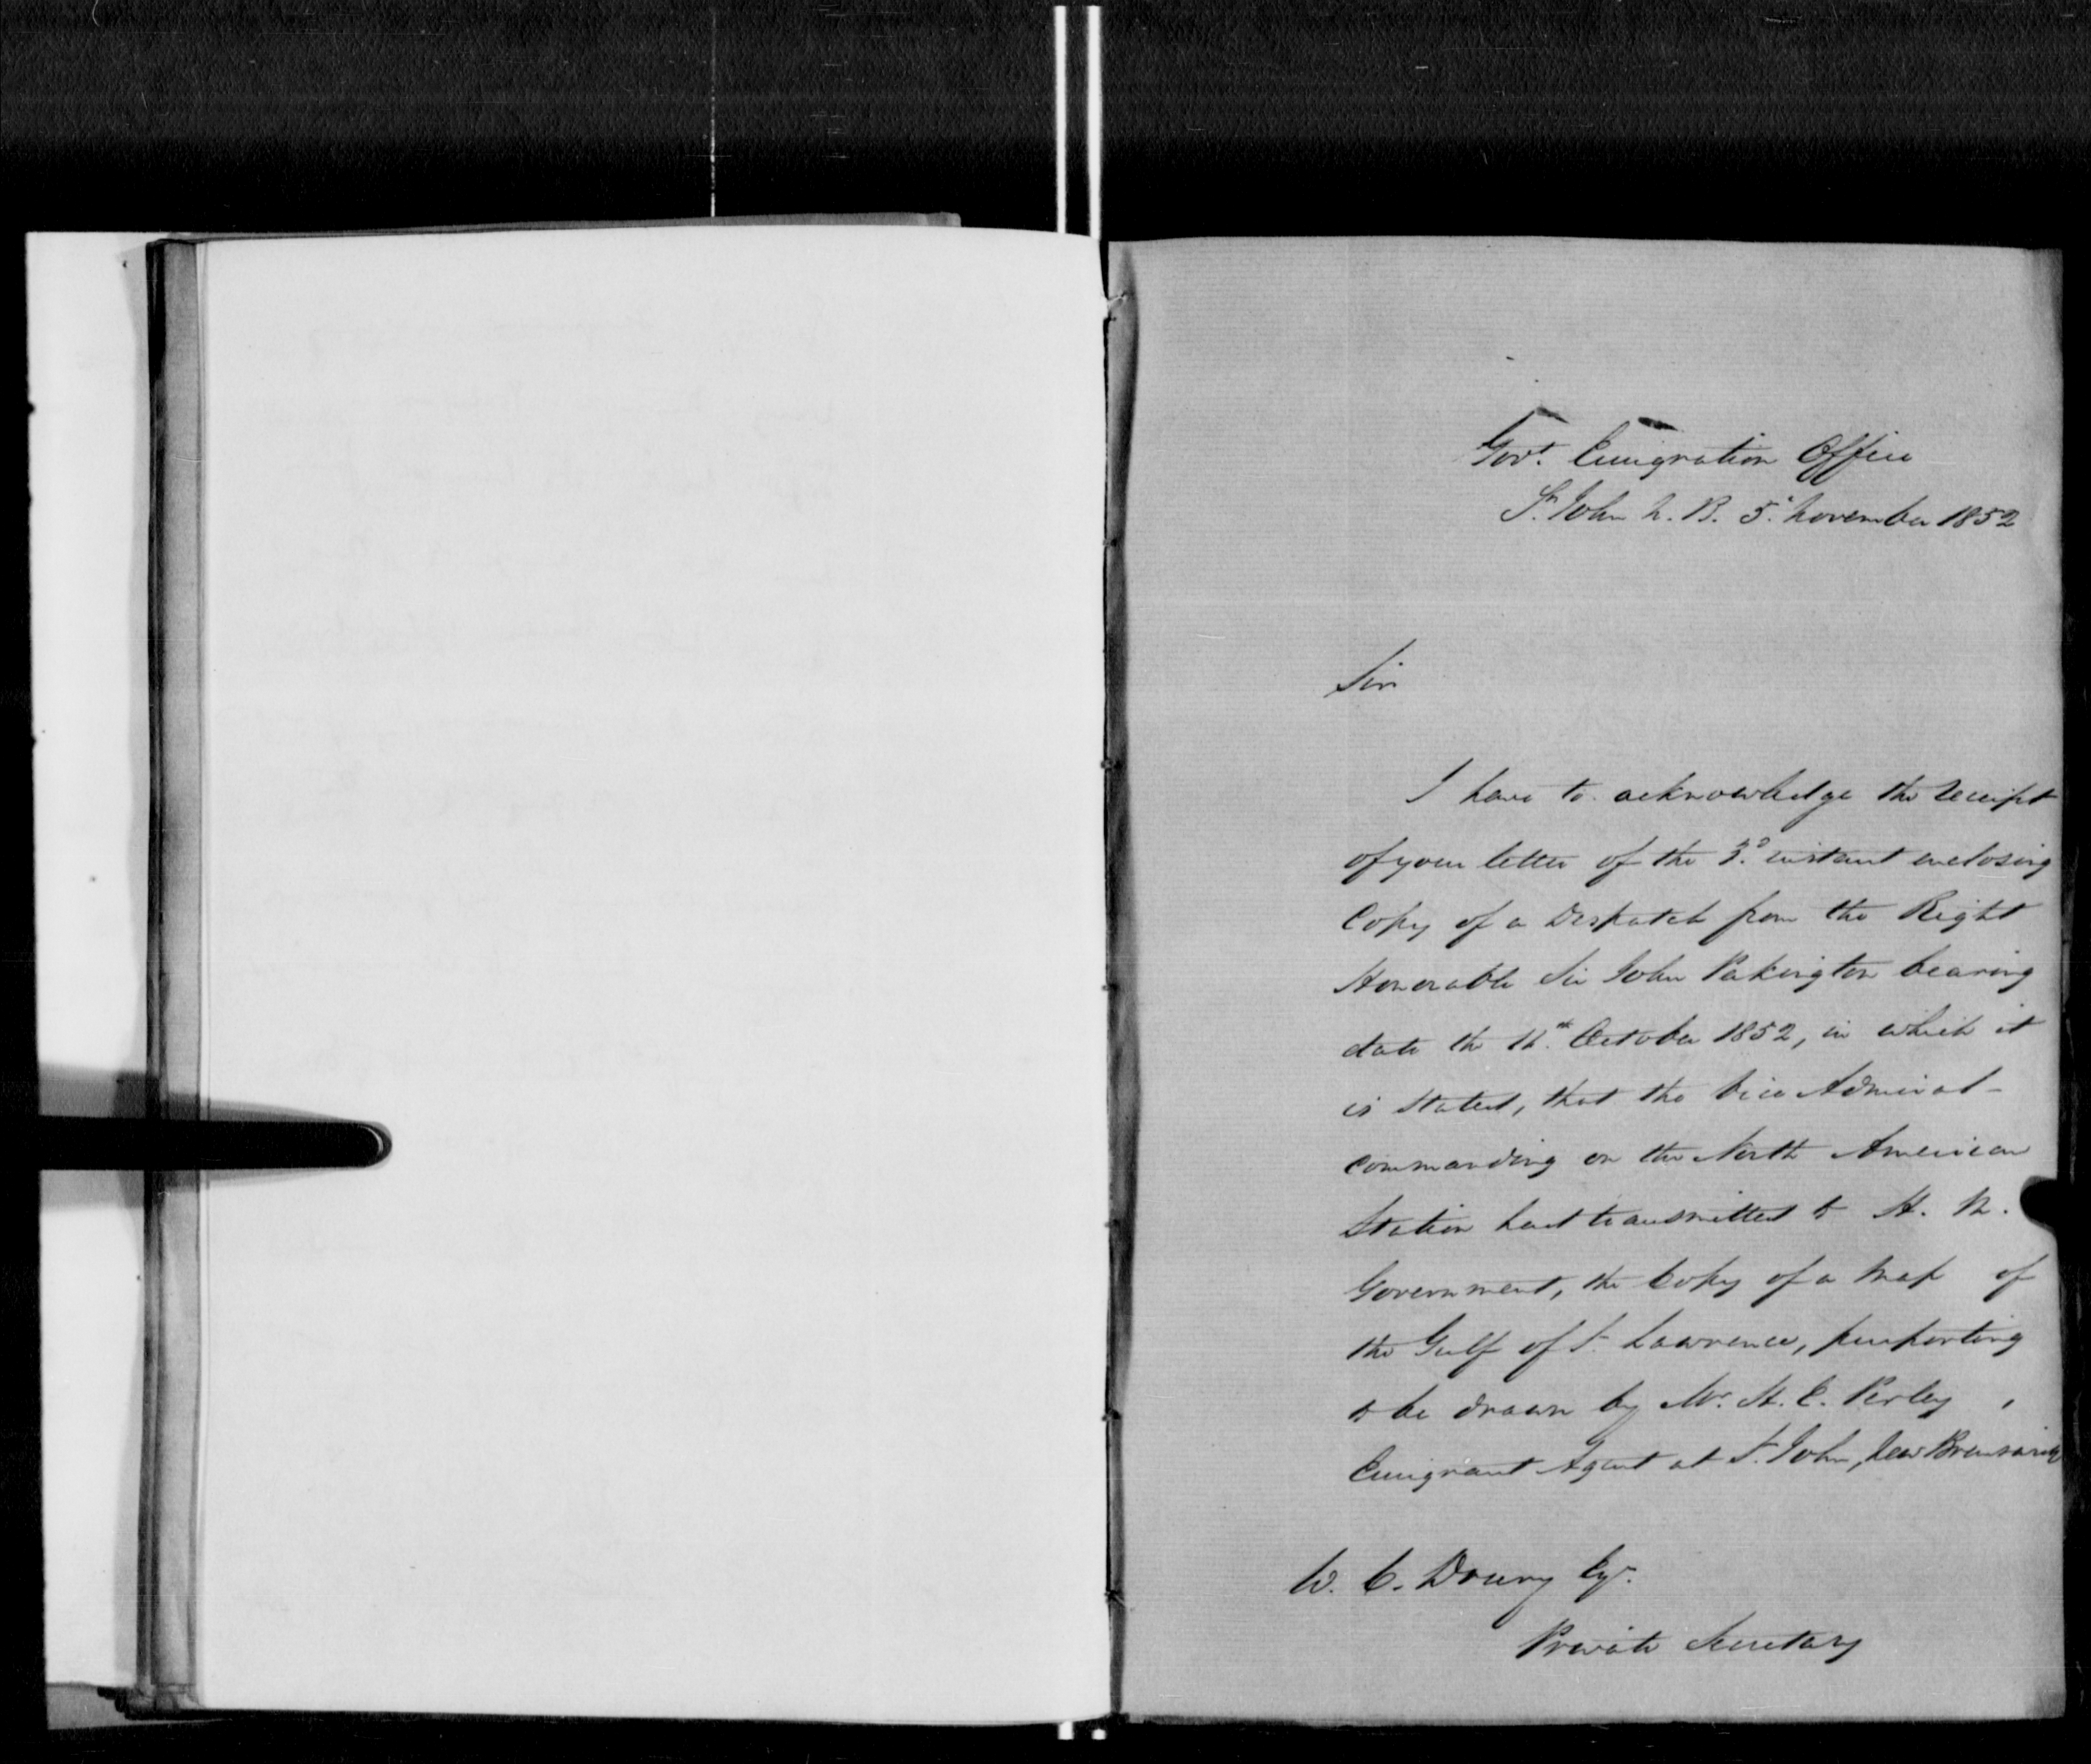 Govt. Emigration Office
St. John N. B. 5th November 1852
Sir
I have to acknowledge the receipt
of your letter of the 3d. instant enclosing
Copy of a Despatch from the Right
Honorable Sir John Pakington bearing
date the th. October 1852, in which it
is stated, that the Vice Admiral
commanding on the North American
Station had transmitted to H. M.
Government, the Copy of a Map of
the Gulf of St. Lawrence, purporting
to be drawn by Mr. M. C. Perley,
Emigrant Agent at St. John, New Brunswick
W. C. Drury Esqr.
Private Secretary